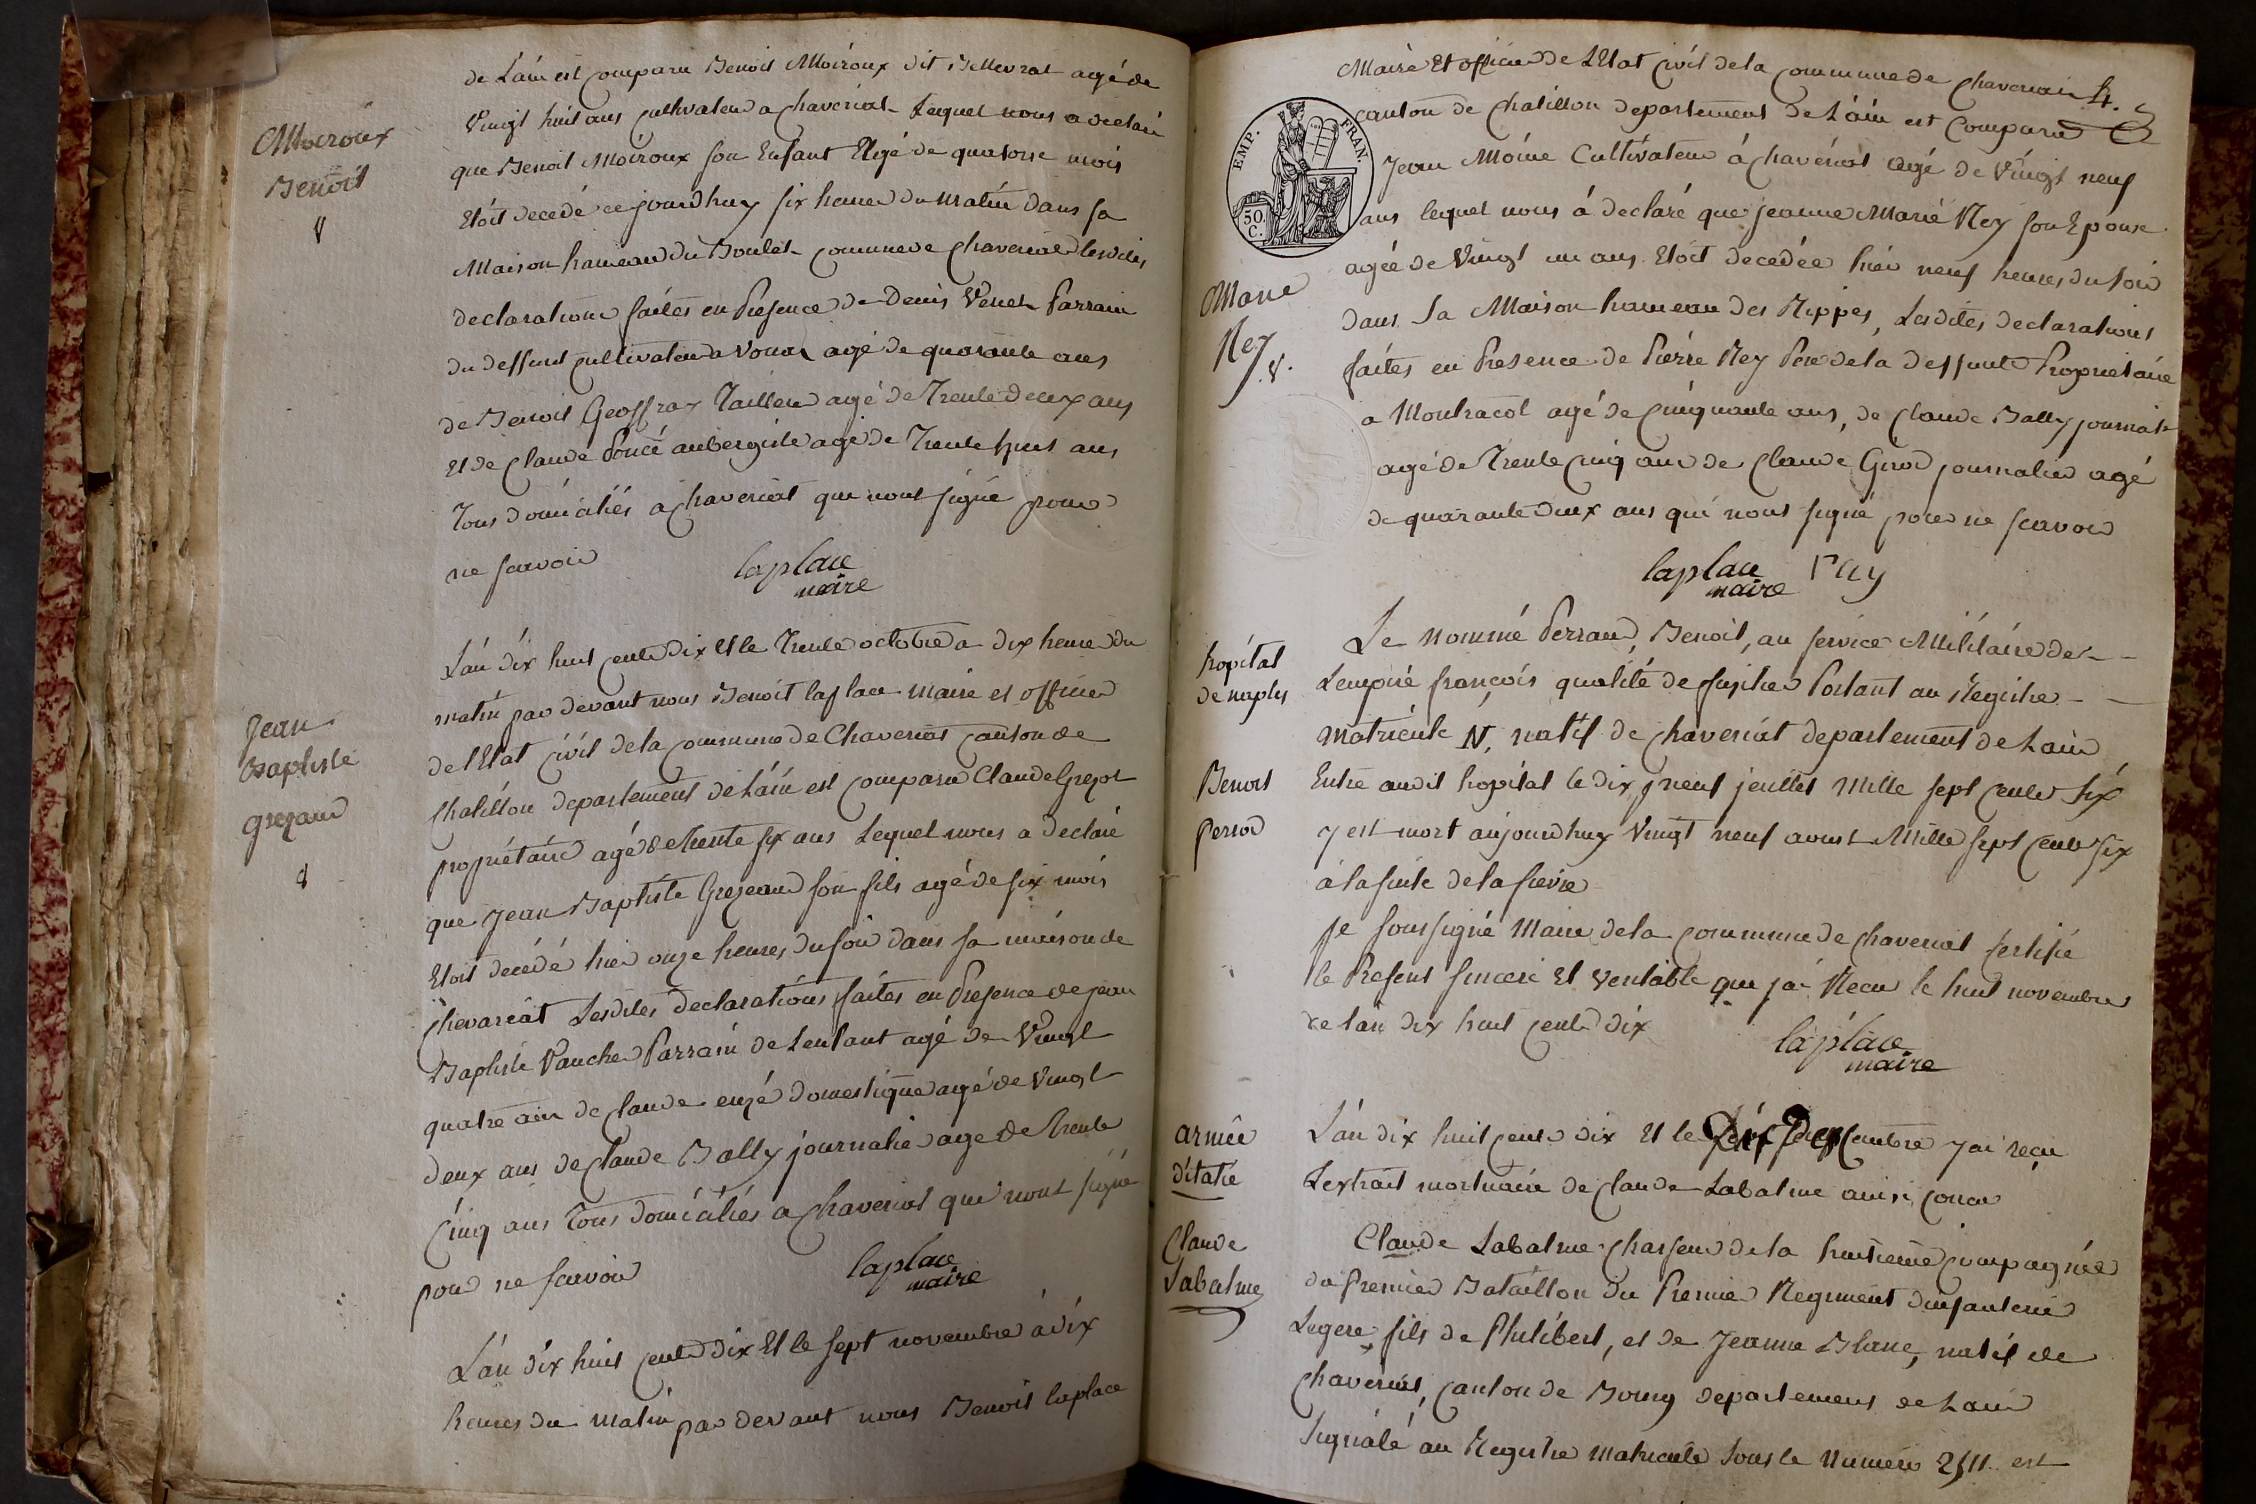 de L'ain est comparu Benoit Moiroux dit Bellevrat agé de
Vingt huit ans cultivateur a chaveriat Lequel nous a declaré
que Benoit Moiroux son Enfant Agé de quatorse mois
Etóit decedé ce jourdhuy six heures du matin dans sa
Maison hameau du Boulet commune de chaveriat lesdites
declarations faites en Présence de Denis Venet Parrain
du deffunt cultivateur a Vonas agé de quarante ans
de Benoit Geoffray Tailleur agé de Trente deux ans
Et de Claude Poncé aubergiste agé de Trente huit ans
Tous domiciliés a chaveriat qui nont signé pour
ne scavoir
laplace
maire
Moiroux
Benoit
L'án dix huit cents dix Et le Trente octobre a dix heures du
matin par devant nous Benoit laplace maire et officier
de l'Etat Civil de la commune de Chaveriat canton de
chatillon departement de L'ain est comparu Claude Grezot
propriétaire agé de trente six ans Lequel nous a declaré
que Jean Baptiste Grezaud son fils agé de six mois
Etoit decédé hier onze heures du soir dans sa maison de
chevariat Lesdites declarations faites en Présence de jean
Baptiste Vaucher Parrain de Lenfant agé de Vingt
quatre ans de Claude enzé domestique agé de Vingt
deux ans de Claude Bally journalier agé de trente
Cinq ans Tous domiciliés a chaveriat qui nont signé
pour ne scavoir
laplace
maire
Jean
Baptiste
grezaud
L'án dix huit cents dix Et le sept novembre á dix
heures du matin par devant nous Benoit laplace
4.
Maire Et officier de L'Etat Civil de la commune de chaveriat
canton de chatillon departement de L'ain est comparu
Jean Moine Cultivateur á chavériat agé de Vingt neuf
ans lequel nous á declaré que jeanne Marie Rey son Epouse
agée de Vingt un ans Etoit decedée hier neuf heures du soir
dans Sa Maison hameau des Rippes, Lesdites declarations
faites en Présence de Pierre Rey Pere de la deffunte Proprietaire
a Montracol agé de Cinquante ans, de Claude Bally journalr
agé de Trente Cinq ans de Claude Girod journalier agé
de quarante deux ans qui nont signé pour ne scavoir
laplace
maire
Rey
EMP. FRAN.
50.
C.
Marie
Rey
Le nommé Perraud, Benoit, au service Militaire de
L'empire françois qualité de fusilier Portant au Registre
matricule N, natif de chaveriat departement de L'ain
Entré audit hopital le dix neuf juillet Mille sept cents six
y est mort aujourdhuy Vingt neuf aoust Mille sept cents six
á la suite de la fievre
hopital
de naples
Benoit
perrod
Je soussigné Maire de la commune de chaveriat certifie
le Présent sincere Et veritable que jai Recu le huit novembre
de l'an dix huit cents dix
laplace
maire
L'án dix huit cents dix Et le Dix Decembre jai reçu
L'extrait mortuaire de Claude Labalme ainsi concu
armée
ditatie
Claude
Labalme
Claude Labalme chasseur de la huitieme compagnée
du Premier Bataillon du Premier Regiment dinfanterie
Legere fils de Philibert, et de Jeanne Blanc, natif de
chaveriat, canton de Bourg departement de L'ain
Signalé au Registre matricule sous le Numéro 2511 est